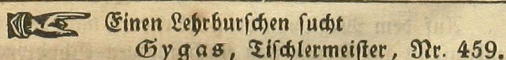 Einen Lehrburschen sucht
Gygas, Tischlermeister, Nr. 459.